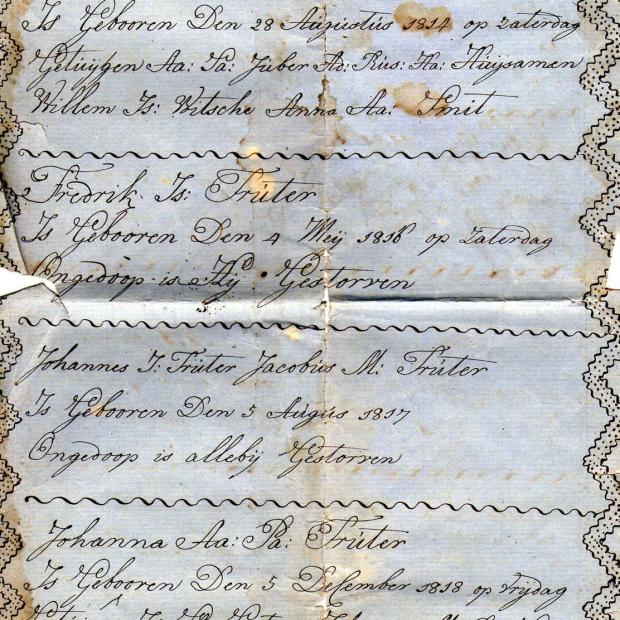 Is Gebooren Den 28 Augustus 1814 op zaterdag
Getuijgen Aa: Pa: Juber Ad: Rus: Ha: Huijsamen
Willem Is: Witsche Anna Aa: Smit
Fredrik Is: Früter
Is Gebooren Den 4 Meij 1816 op zaterdag
Ongedoop is Hÿ Gestorven
Johannes I: Früter Jacobus M: Früter
Is Gebooren Den 5 Augus 1817
Ongedoop is allebÿ Gestorven
Johanna Aa: Pa: Früter
Is Gebooren Den 5 December 1818 op vrijdag